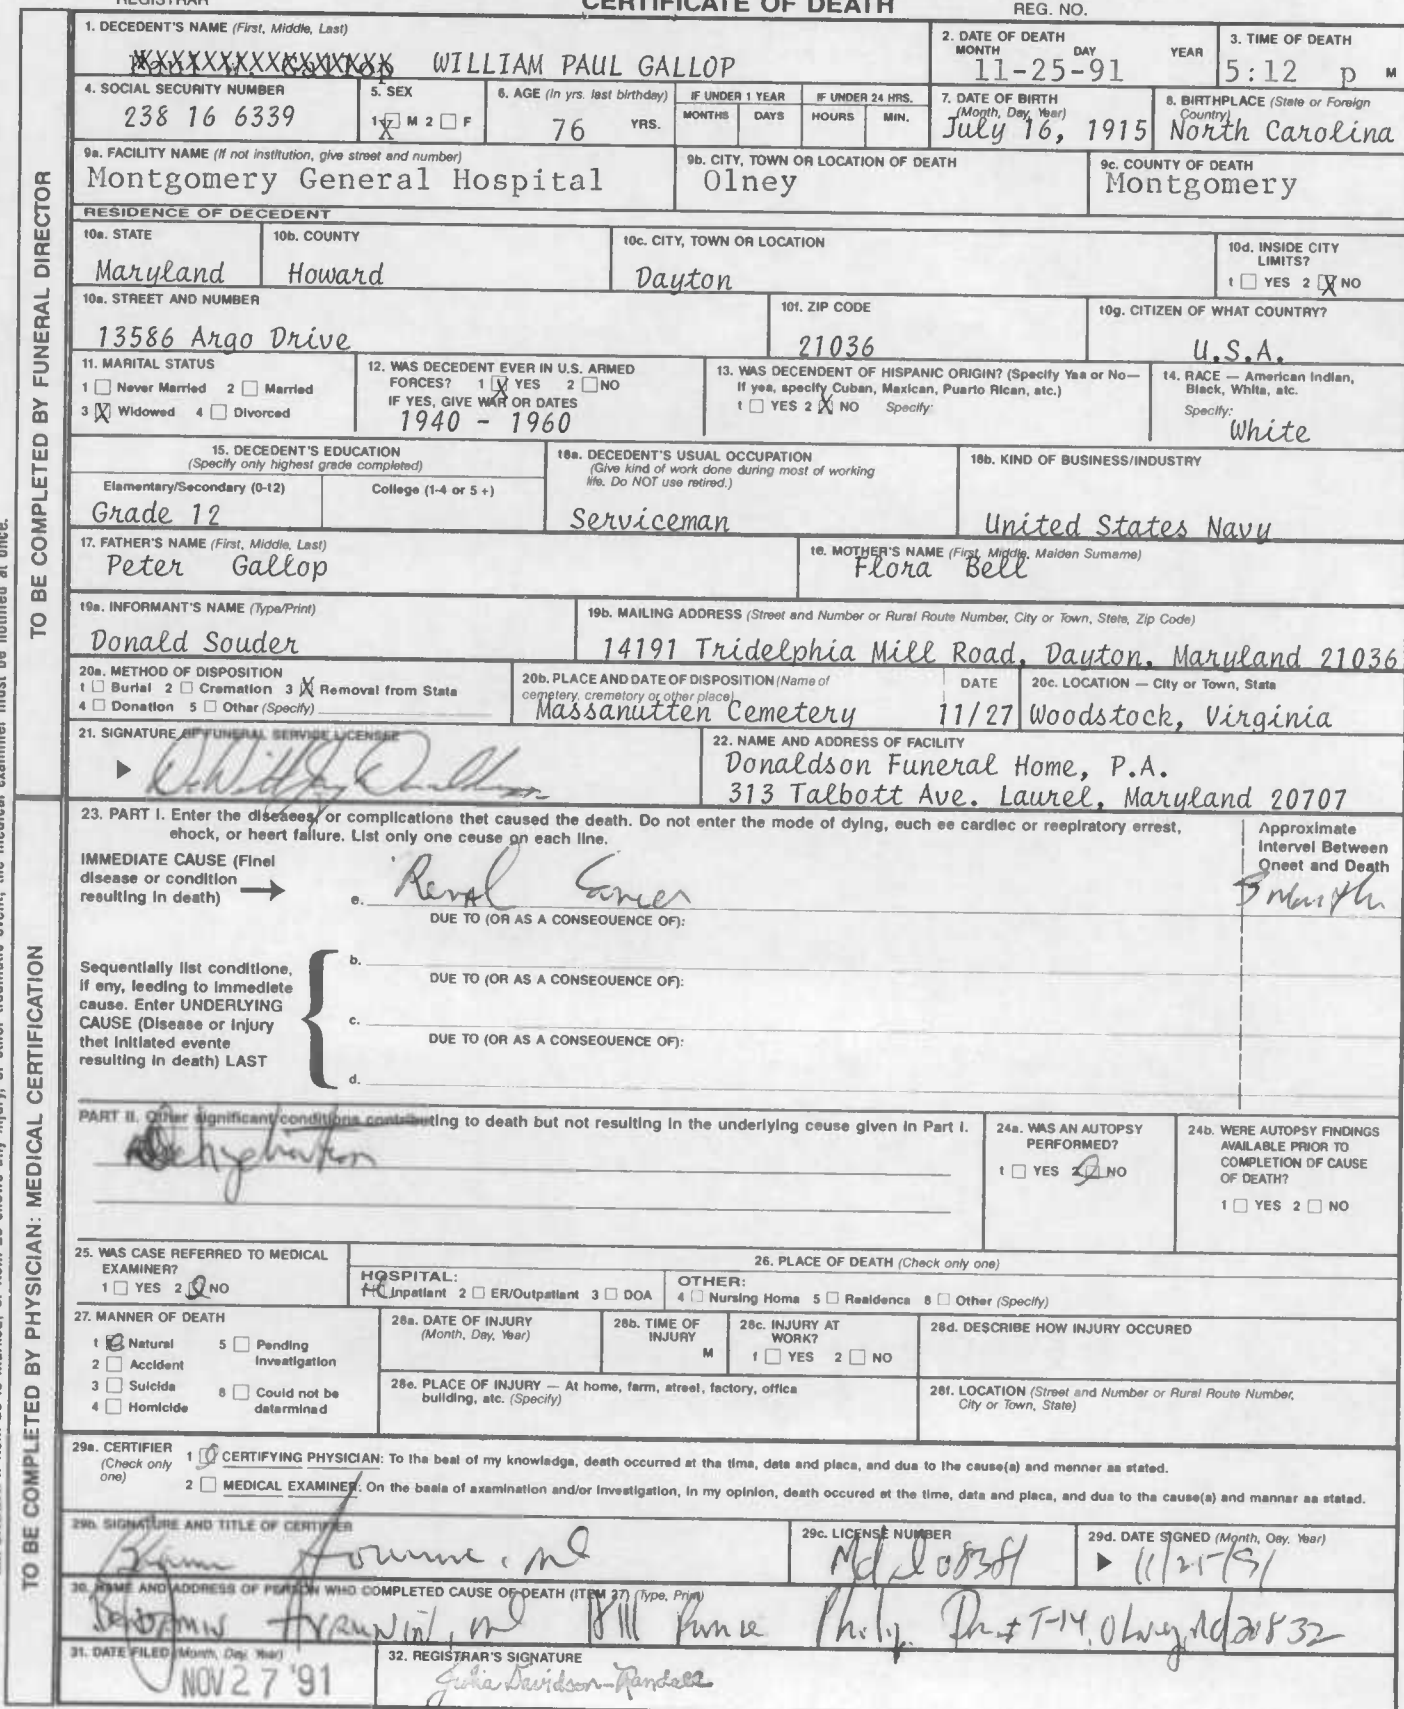 REGISTRAR CERTIFICATE OF DEATH REG. NO.
TO BE COMPLETED BY FUNERAL DIRECTOR
1. DECEDENT'S NAME (First, Middle, Last)
Paul W. Gallop WILLIAM PAUL GALLOP
2. DATE OF DEATH
MONTH DAY YEAR
11-25-91
3. TIME OF DEATH
5:12 p M
4. SOCIAL SECURITY NUMBER
238 16 6339
5. SEX
1 X M 2 ☐ F
6. AGE (In yrs. last birthday)
76 YRS.
IF UNDER 1 YEAR
MONTHS DAYS
IF UNDER 24 HRS.
HOURS MIN.
7. DATE OF BIRTH
(Month, Day, Year)
July 16, 1915
8. BIRTHPLACE (State or Foreign
Country)
North Carolina
9a. FACILITY NAME (If not institution, give street and number)
Montgomery General Hospital
9b. CITY, TOWN OR LOCATION OF DEATH
Olney
9c. COUNTY OF DEATH
Montgomery
RESIDENCE OF DECEDENT
10a. STATE
Maryland
10b. COUNTY
Howard
10c. CITY, TOWN OR LOCATION
Dayton
10d. INSIDE CITY
LIMITS?
1 ☐ YES 2 X NO
10e. STREET AND NUMBER
13586 Argo Drive
10f. ZIP CODE
21036
10g. CITIZEN OF WHAT COUNTRY?
U.S.A.
11. MARITAL STATUS
1 ☐ Never Married 2 ☐ Married
3 X Widowed 4 ☐ Divorced
12. WAS DECEDENT EVER IN U.S. ARMED
FORCES? 1 X YES 2 ☐ NO
IF YES, GIVE WAR OR DATES
1940 - 1960
13. WAS DECENDENT OF HISPANIC ORIGIN? (Specify Yes or No—
If yes, specify Cuban, Mexican, Puerto Rican, etc.)
1 ☐ YES 2 X NO Specify:
14. RACE — American Indian,
Black, White, etc.
Specify:
White
15. DECEDENT'S EDUCATION
(Specify only highest grade completed)
Elementary/Secondary (0-12) College (1-4 or 5 +)
Grade 12
16a. DECEDENT'S USUAL OCCUPATION
(Give kind of work done during most of working
life. Do NOT use retired.)
Serviceman
16b. KIND OF BUSINESS/INDUSTRY
United States Navy
17. FATHER'S NAME (First, Middle, Last)
Peter Gallop
18. MOTHER'S NAME (First, Middle, Maiden Surname)
Flora Bell
19a. INFORMANT'S NAME (Type/Print)
Donald Souder
19b. MAILING ADDRESS (Street and Number or Rural Route Number, City or Town, State, Zip Code)
14191 Tridelphia Mill Road, Dayton, Maryland 21036
20a. METHOD OF DISPOSITION
1 ☐ Burial 2 ☐ Cremation 3 X Removal from State
4 ☐ Donation 5 ☐ Other (Specify)
20b. PLACE AND DATE OF DISPOSITION (Name of
cemetery, crematory or other place)
Massanutten Cemetery
DATE
11/27
20c. LOCATION — City or Town, State
Woodstock, Virginia
21. SIGNATURE OF FUNERAL SERVICE LICENSEE
22. NAME AND ADDRESS OF FACILITY
Donaldson Funeral Home, P.A.
313 Talbott Ave. Laurel, Maryland 20707
TO BE COMPLETED BY PHYSICIAN: MEDICAL CERTIFICATION
23. PART I. Enter the diseases, or complications that caused the death. Do not enter the mode of dying, such as cardiac or respiratory arrest,
shock, or heart failure. List only one cause on each line.
Approximate
Interval Between
Onset and Death
IMMEDIATE CAUSE (Final
disease or condition
resulting in death)
a. Renal Cancer
DUE TO (OR AS A CONSEQUENCE OF):
Sequentially list conditions,
if any, leading to immediate
cause. Enter UNDERLYING
CAUSE (Disease or injury
that initiated events
resulting in death) LAST
b.
DUE TO (OR AS A CONSEQUENCE OF):
c.
DUE TO (OR AS A CONSEQUENCE OF):
d.
PART II. Other significant conditions contributing to death but not resulting in the underlying cause given in Part I.
Dehydration
24a. WAS AN AUTOPSY
PERFORMED?
1 ☐ YES 2 ☐ NO
24b. WERE AUTOPSY FINDINGS
AVAILABLE PRIOR TO
COMPLETION OF CAUSE
OF DEATH?
1 ☐ YES 2 ☐ NO
25. WAS CASE REFERRED TO MEDICAL
EXAMINER?
1 ☐ YES 2 ☐ NO
26. PLACE OF DEATH (Check only one)
HOSPITAL:
Inpatient 2 ☐ ER/Outpatient 3 ☐ DOA
OTHER:
4 ☐ Nursing Home 5 ☐ Residence 6 ☐ Other (Specify)
27. MANNER OF DEATH
1 ☐ Natural 5 ☐ Pending
Investigation
2 ☐ Accident
3 ☐ Suicide 6 ☐ Could not be
determined
4 ☐ Homicide
28a. DATE OF INJURY
(Month, Day, Year)
28b. TIME OF
INJURY
M
28c. INJURY AT
WORK?
1 ☐ YES 2 ☐ NO
28d. DESCRIBE HOW INJURY OCCURED
28e. PLACE OF INJURY — At home, farm, street, factory, office
building, etc. (Specify)
28f. LOCATION (Street and Number or Rural Route Number,
City or Town, State)
29a. CERTIFIER
(Check only
one)
1 ☐ CERTIFYING PHYSICIAN: To the best of my knowledge, death occurred at the time, date and place, and due to the cause(s) and manner as stated.
2 ☐ MEDICAL EXAMINER: On the basis of examination and/or investigation, in my opinion, death occured at the time, date and place, and due to the cause(s) and manner as stated.
29b. SIGNATURE AND TITLE OF CERTIFIER
29c. LICENSE NUMBER
29d. DATE SIGNED (Month, Day, Year)
11/25/91
30. NAME AND ADDRESS OF PERSON WHO COMPLETED CAUSE OF DEATH (ITEM 27) (Type, Print)
Prince Philip Dr # T-14, Olney, Md 20832
31. DATE FILED (Month, Day, Year)
NOV 27 '91
32. REGISTRAR'S SIGNATURE
Julia Davidson-Randall